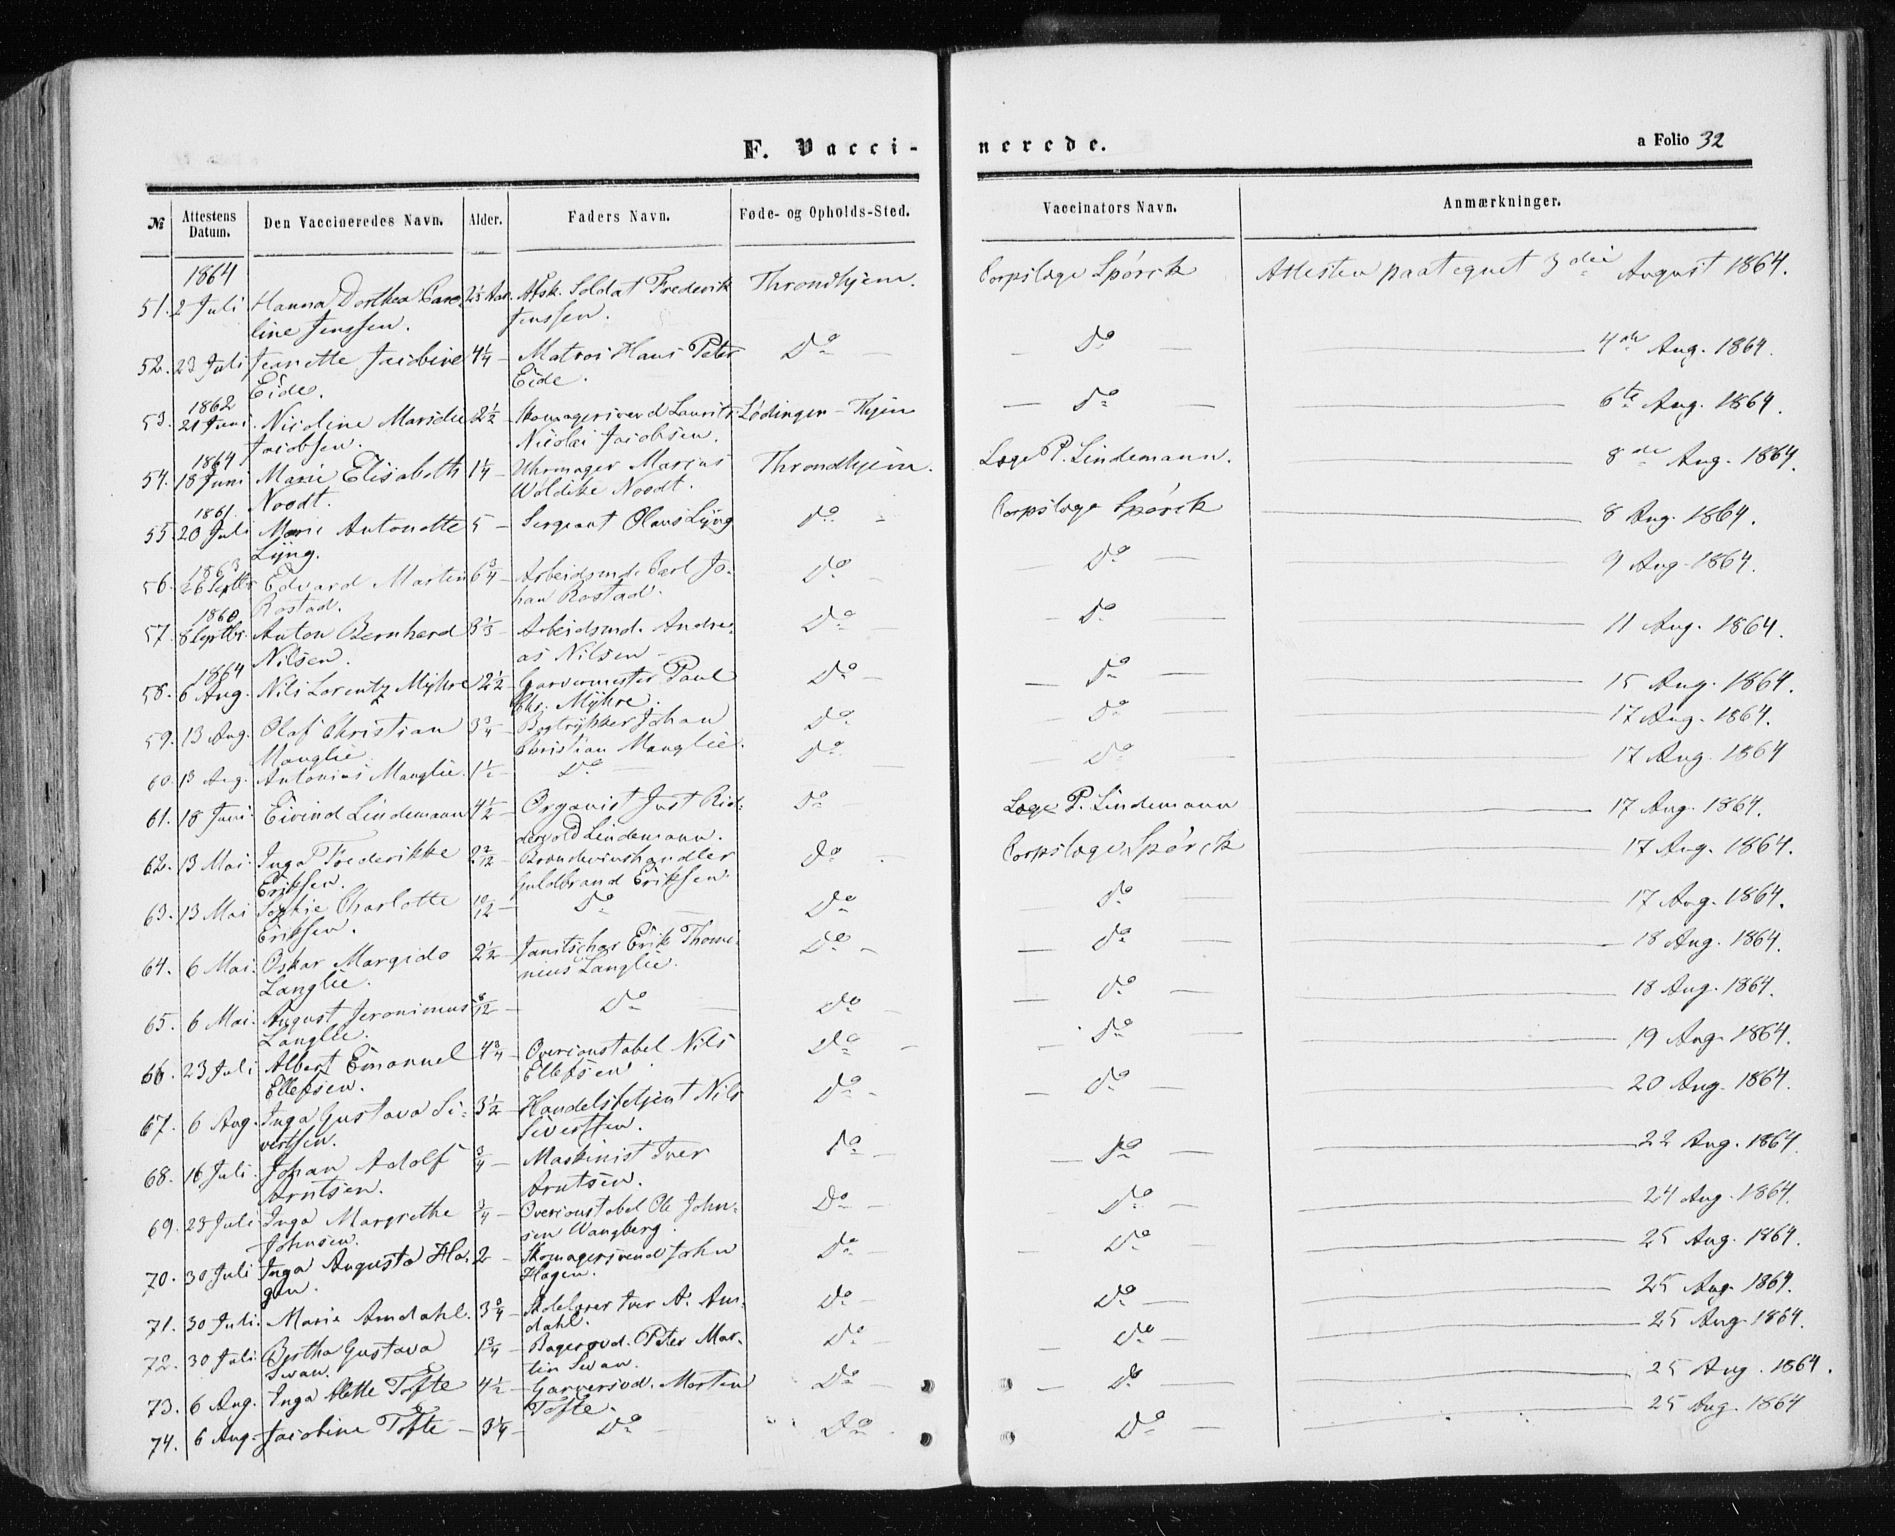 F. Vacci-nerede.
a Folio 32
№ Attestens Datum. Den Vaccineredes Navn. Alder. Faders Navn. Føde- og Opholds-Sted. Vaccinators Navn. Anmærkninger.
1864
51. 2 Juli Hanna Dorthea Caro- Aar. Afsk. Soldat Frederik Throndhjem. Corpslæge Spørck Attesten paategnet 3die August 1864.
line Jenssen. Jenssen.
52. 23 Juli Jeanette Jacobine 4 1/4 – Matros Hans Peter Do – – Do – 4de Aug. 1864.
Eide. Eide.
1862
53. 21 Juni Nicoline Marselie 2 1/2 Skomagersvend Laurits Lødingen – Thjem – Do – 6te Aug. 1864.
Jacobsen. Nicolai Jacobsen.
1864
54. 18 Juni Marie Elisabeth 1 1/4 – Uhrmager Marius Throndhjem. Læge P. Lindemann. 8de Aug. 1864.
Noodt. Wøldike Noodt.
1861.
55. 20 Juli Marie Antonette 5 – Sergeant Olaus Lÿng Do – Corpslæge Spørck 8 Aug. 1864.
Lÿng.
56. 26 Septbr Edvard Martin 6 3/4 – Arbeidsmd. Carl Jo- Do – Do – 9 Aug. 1864.
Rostad. han Rostad.
1860
57. 8 Septbr. Anton Bernhard 3 1/3 – Arbeidsmd. Andre- Do – – Do – 11 Aug. 1864.
Nilsen. as Nilsen –
1864
58. 6 Aug. Nils Lorentz Mÿhre 2 1/2 – Garvermester Paul Do – – Do – 15 Aug. 1864.
Chr. Mÿhre.
59. 13 Aug. Olaf Christian 3 3/4 – Bogtrÿkker Johan Do – Do – 17 Aug. 1864.
Manglie Christian Manglie.
60. 13 Aug. Antonius Manglie. 1 1/2 – Do Do – – Do – 17 Aug. 1864
61. 18 Juni Eivind Lindemann 4 1/2 – Organist Just Rid- Do – Læge P. Lindemann 17 Aug. 1864.
dervold Lindemann.
62. 13 Mai. Inga Frederikke 2 2/12 – Brændeviinshandler Do – Corpslæge Spørck 17 Aug. 1864.
Eriksen. Guldbrand Eriksen.
63. 13 Mai Sophie Charlotte 10/12 – Do – Do – Do – 17 Aug. 1864.
Eriksen.
64. 6 Mai. Oskar Margido 2 1/2 – Janitschar Erik Thomi- Do – – Do – 18 Aug. 1864.
Langlie. neus Langlie.
65. 6 Mai. August Jeronimus 8/12 – Do – Do – – Do – 18 Aug. 1864.
Langlie.
66. 23 Juli Albert Emanuel 4 3/4 – Overconstabel Nils Do – – Do – 19 Aug. 1864.
Ellefsen. Ellefsen.
67. 6 Aug. Inga Gustava Si- 3 1/2 – Handelsbetjent Nils Do – – Do – 20 Aug. 1864.
vertsen. Sivertsen.
68. 16 Juli. Johan Adolf 3/4 – Maskinist Iver Do – – Do – 22 Aug. 1864.
Arntsen. Arntsen.
69. 23 Juli Inga Margrethe 3/4 – Overconstabel Ole John- Do – – Do – 24 Aug. 1864.
Johnsen. sen Wangberg.
70. 30 Juli Inga Augusta Ha- 2 – Skomagersvend John Do – – Do – 25 Aug. 1864.
gen. Hagen.
71. 30 Juli. Marie Amdahl. 3 3/4 – Iver A. Am- Do – Do – 25 Aug. 1864.
dahl.
72. 30 Juli. Bertha Gustava 1 3/4 – Bagersvd. Peter Mar- Do – – Do – 25 Aug. 1864.
Swan. tin Swan.
73. 6 Aug. Inga Alette Tofte 4 1/2 – Garversvd. Morten Do – – Do – 25 Aug. 1864.
Tofte.
74. 6 Aug. Jacobine Tofte – 3 1/4 – Do – Do – Do – 25 Aug. 1864